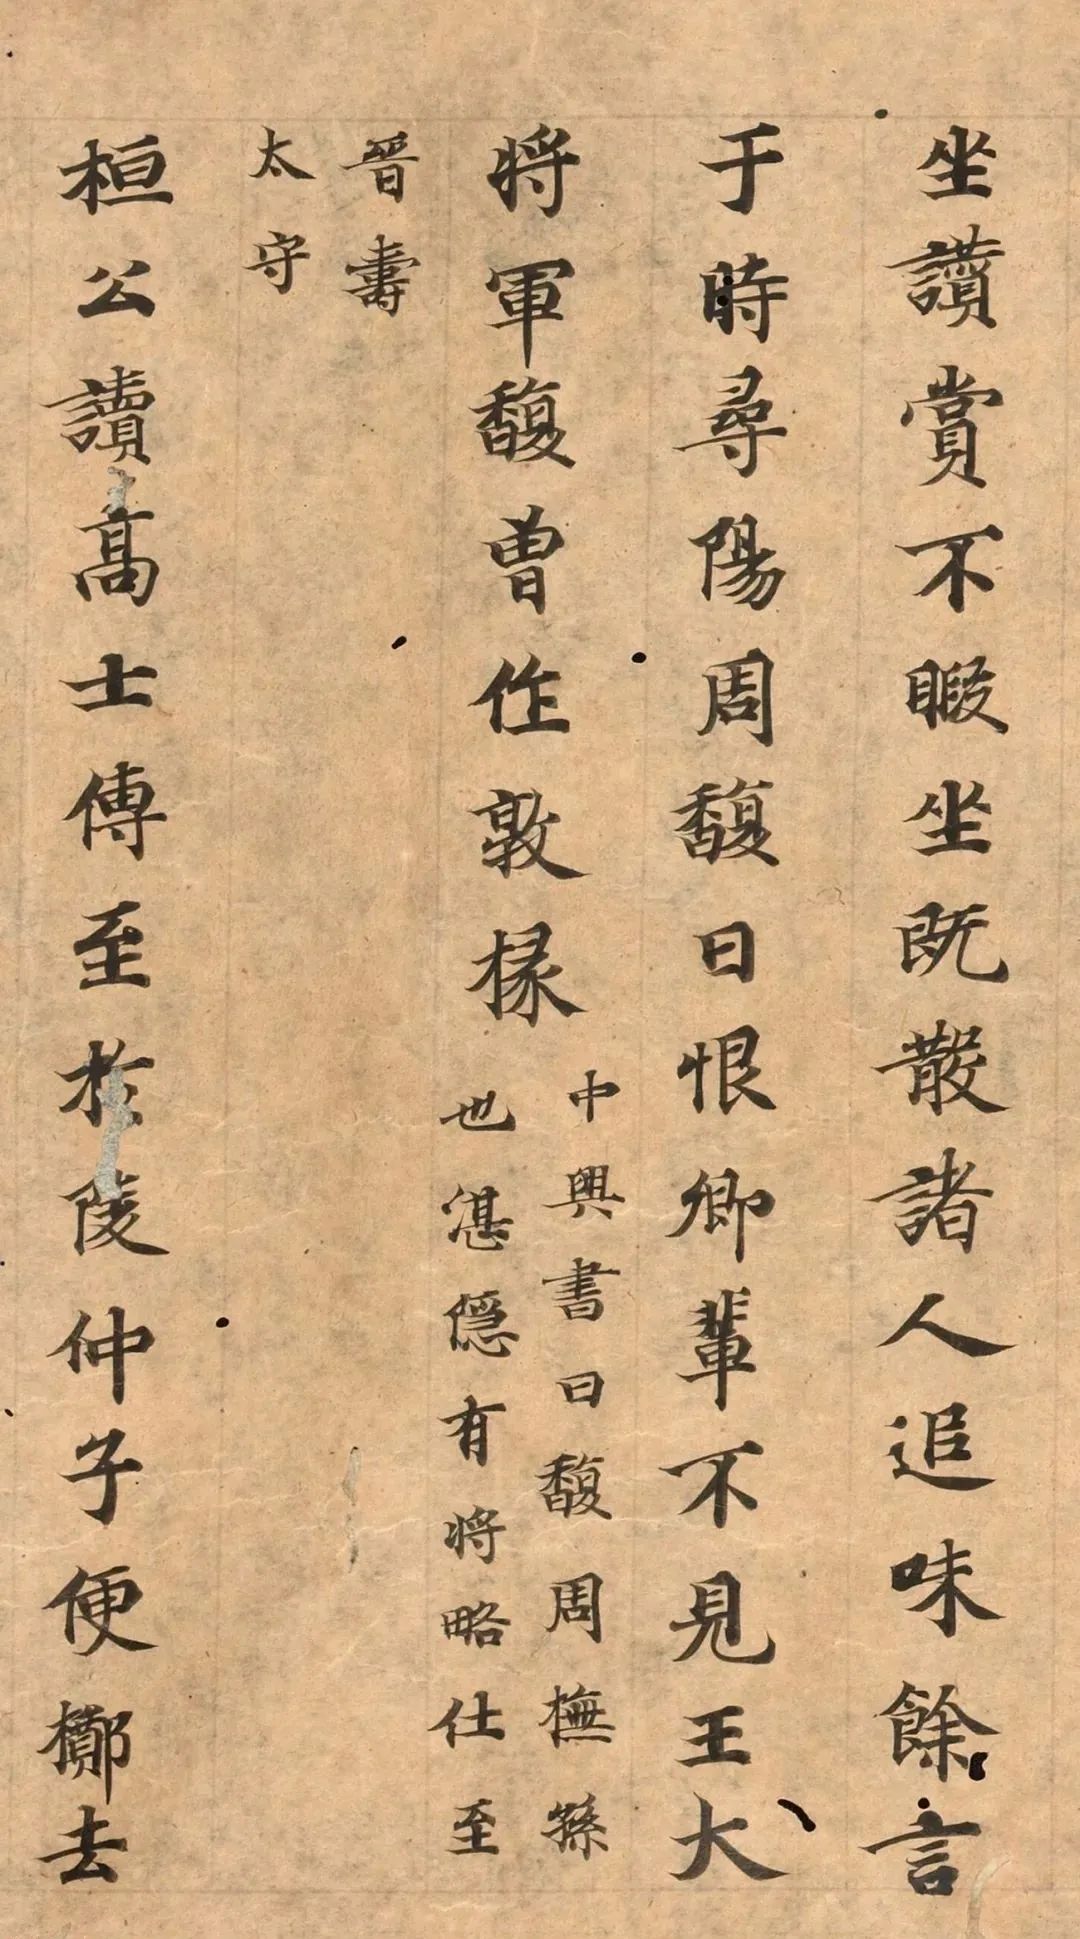 坐讃賞不暇坐既散諸人追味餘言
于時尋陽周馥曰恨卿輩不見王大
将軍馥曽作敦椽
中興書曰馥周橅孫
也湛隠有将略仕至
晋壽
太守
桓公讀髙士傳至於陵仲子便擲去